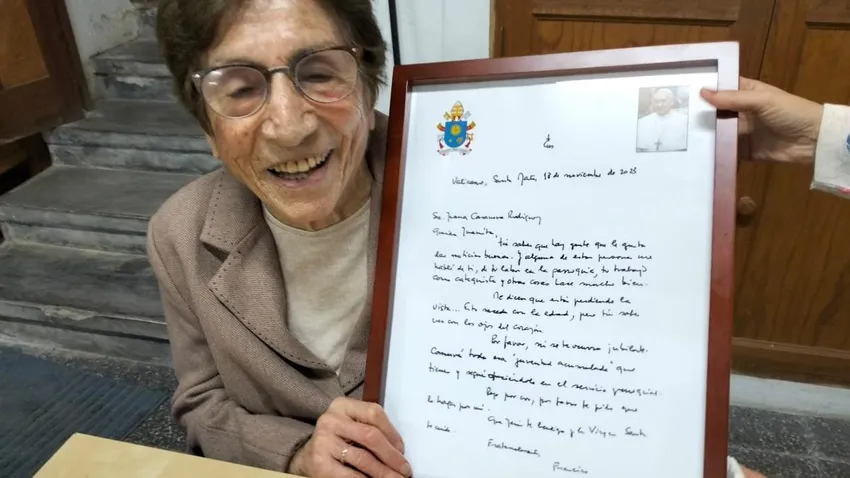 Vaticano, Santa Marta, 18 de noviembre de 2023
Sra. Juana Casanova Rodríguez
Querida Juanita,
tú sabes que hay gente que le gusta
dar noticias buenas. Y alguna de estas personas me
habló de ti, de tu labor en la parroquia, tu trabajo
como catequista y otras cosas hace mucho bien.
Me dicen que está perdiendo la
vista... Esto sucede con la edad, pero tú sabe
ver con los ojos del corazón
Por favor, ni se te ocurra jubilarte.
Conservá toda esa "juventud acumulada" que
tienes y seguí en el servicio parroquial.
Rezo por vos, por favor te pido que
lo hagas por mí.
Que Jesús te bendiga y la Virgen Santa
te cuide.
Fraternalmente,
Francisco